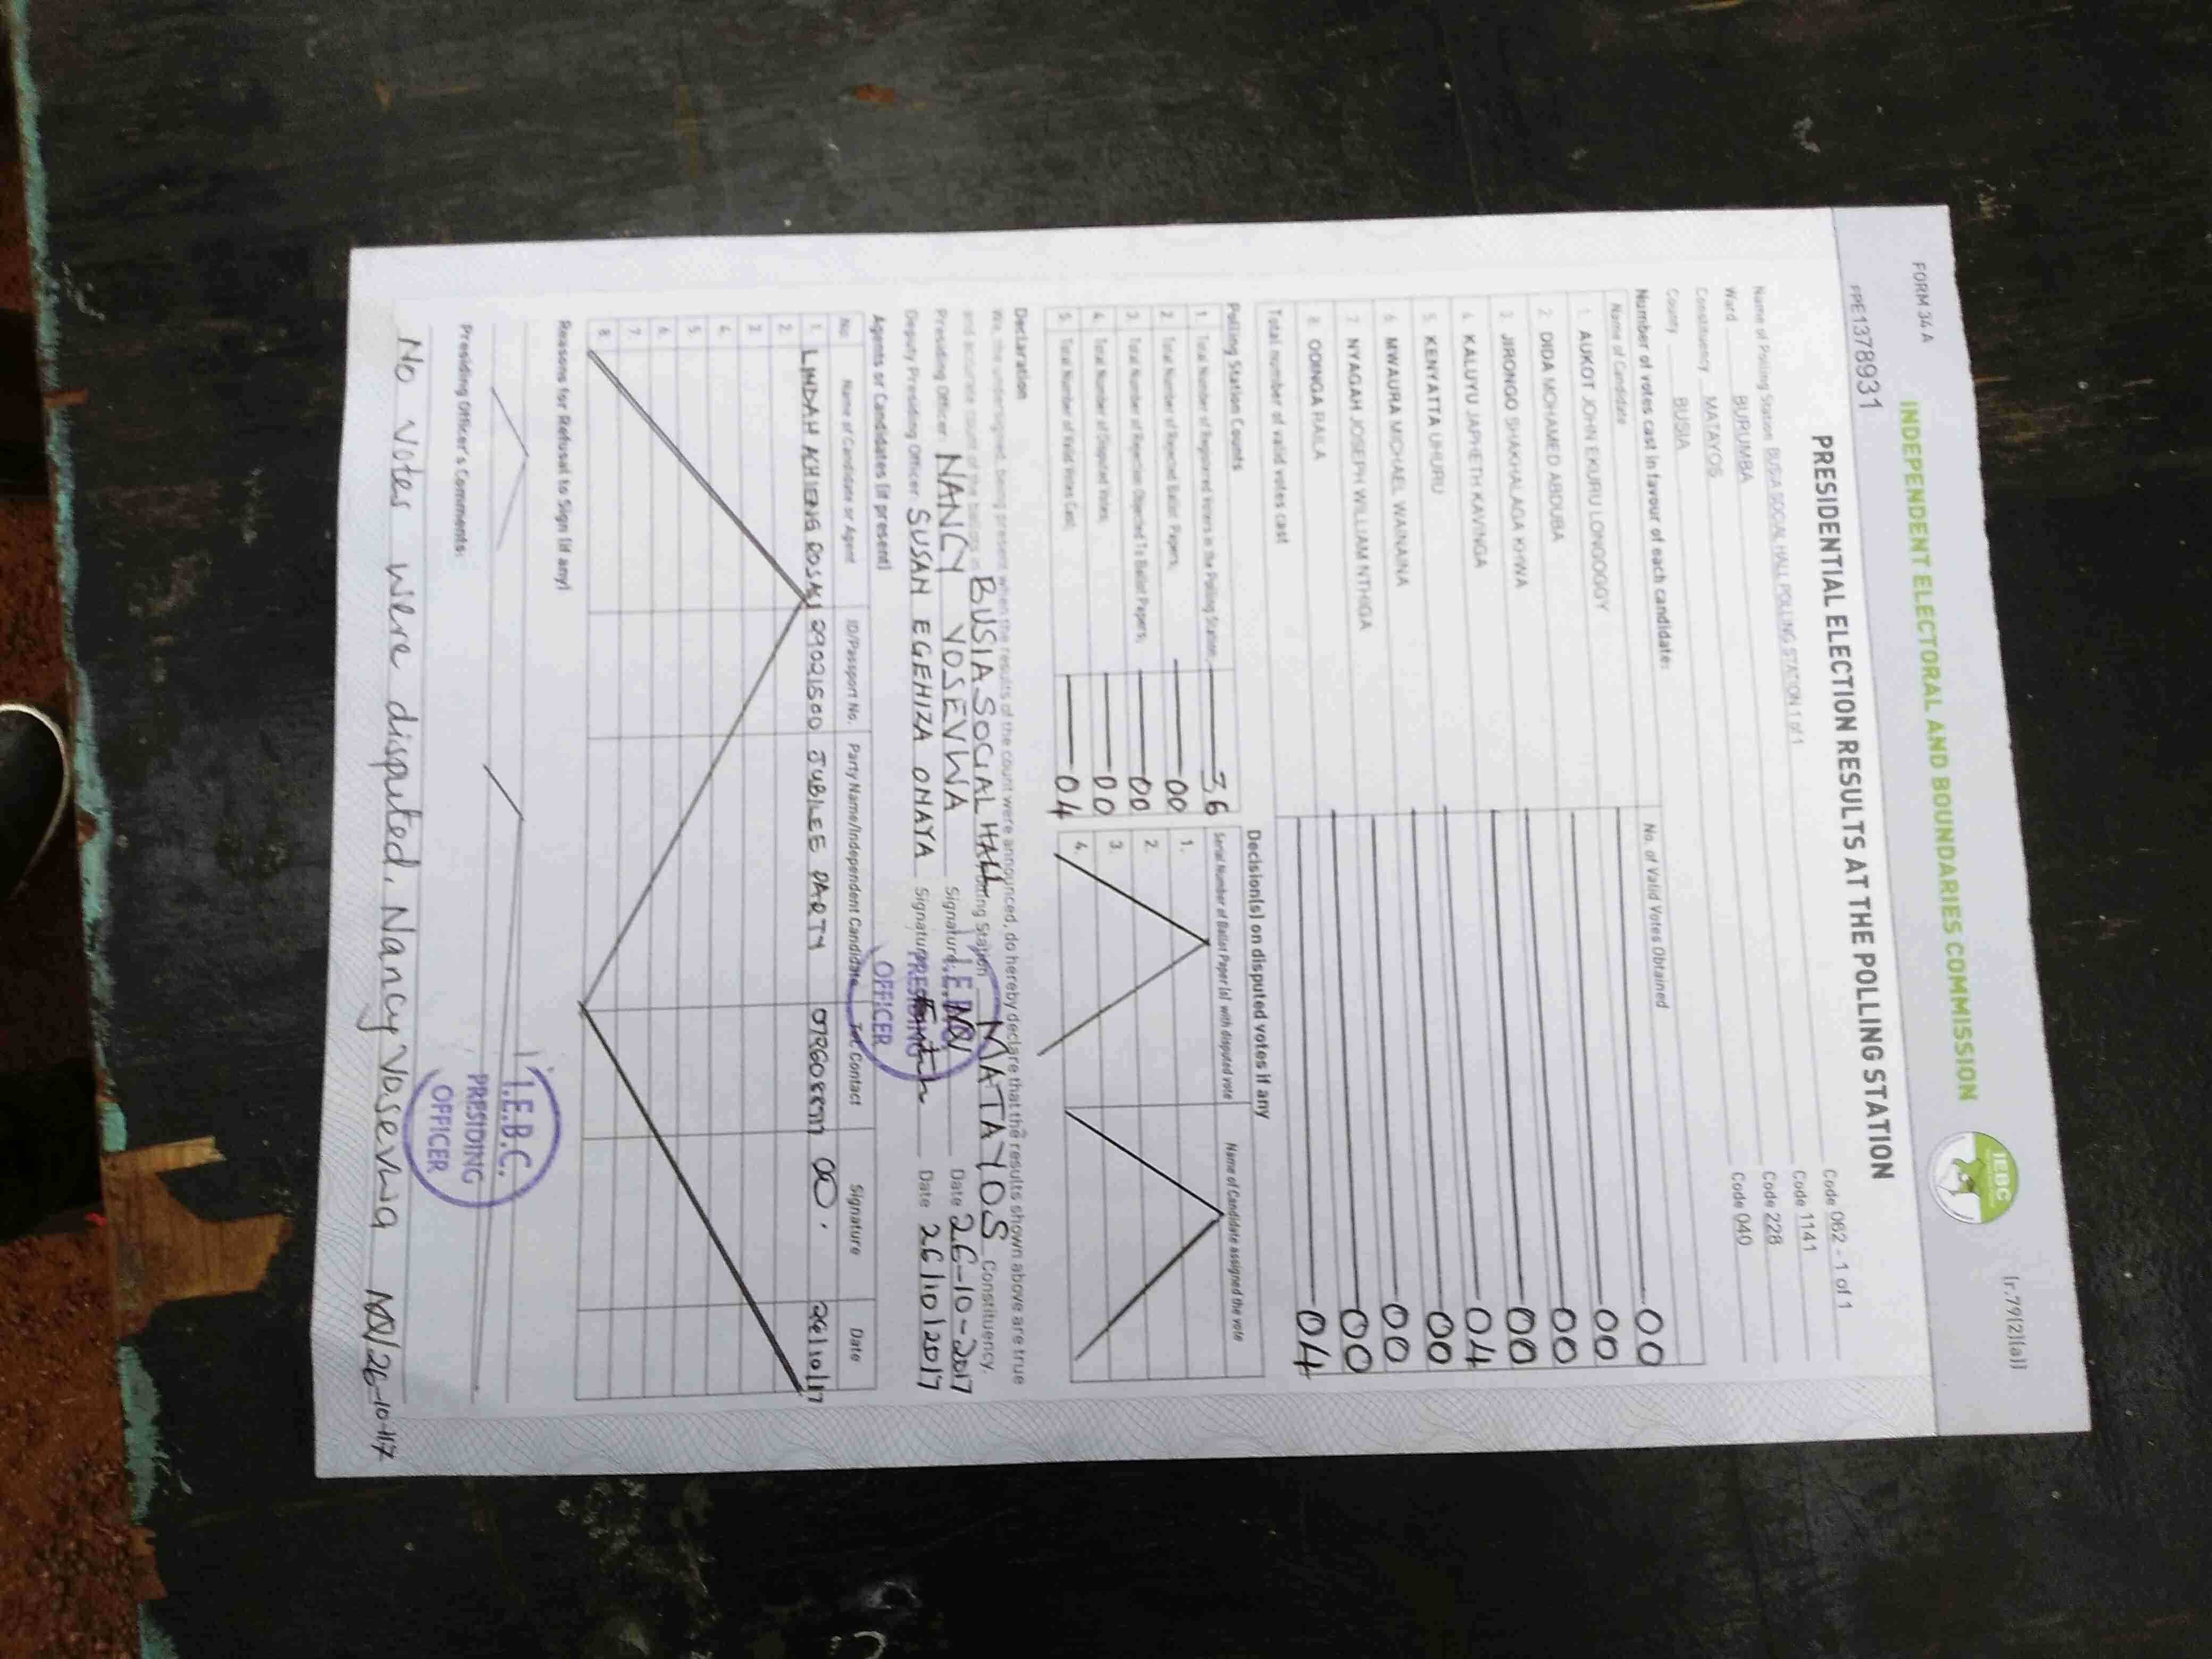 FORM 34A
(r.79(2)(a))
INDEPENDENT ELECTORAL AND BOUNDARIES COMMISSION
IEBC
FPE1378931
PRESIDENTIAL ELECTION RESULTS AT THE POLLING STATION
Name of Polling Station BUSIA SOCIAL HALL POLLING STATION 1 of 1 Code 062 - 1 of 1
Ward BURUMBA Code 1141
Constituency MATAYOS Code 228
County BUSIA Code 040
Number of votes cast in favour of each candidate:
Name of Candidate No. of Valid Votes Obtained
1. AUKOT JOHN EKURU LONGOGGY 00
2. DIDA MOHAMED ABDUBA 00
3. JIRONGO SHAKHALAGA KHWA 00
4. KALUYU JAPHETH KAVINGA 00
5. KENYATTA UHURU 04
6. MWAURA MICHAEL WAINAINA 00
7. NYAGAH JOSEPH WILLIAM NTHIGA 00
8. ODINGA RAILA 00
Total number of valid votes cast 04
Polling Station Counts
1. Total Number of Registered Voters in the Polling Station; 36
2. Total Number of Rejected Ballot Papers; 00
3. Total Number of Rejection Objected To Ballot Papers; 00
4. Total Number of Disputed Votes; 00
5. Total Number of Valid Votes Cast; 04
Decision(s) on disputed votes if any
Serial Number of Ballot Paper (s) with disputed vote Name of Candidate assigned the vote
1.
2.
3.
4.
Declaration
We, the undersigned, being present when the results of the count were announced, do hereby declare that the results shown above are true
and accurate count of the ballots in BUSIA SOCIAL HALL Polling Station MATAYOS Constituency.
Presiding Officer: NANCY VOSEVWA Signature: Date 26-10-2017
Deputy Presiding Officer: SUSAN EGEHIZA ONAYA Signature: Date 26/10/2017
I.E.B.C.
PRESIDING
OFFICER
Agents or Candidates (if present)
No. Name of Candidate or Agent ID/Passport No. Party Name/Independent Candidate Tel. Contact Signature Date
1. LINDAH ACHIENG 29021500 JUBILEE PARTY 26/10/17
2.
3.
4.
5.
6.
7.
8.
Reasons for Refusal to Sign (if any)
Presiding Officer's Comments:
No votes were disputed. Nancy Vosevwa 26-10-17
I.E.B.C.
PRESIDING
OFFICER